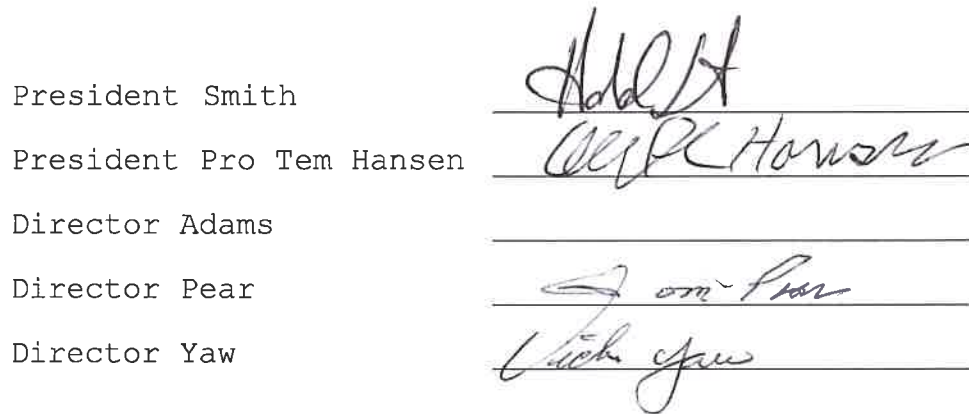 President Smith
President Pro Tem Hansen Hansen
Director Adams
Director Pear Tom Pear
Director Yaw Vicki Yaw